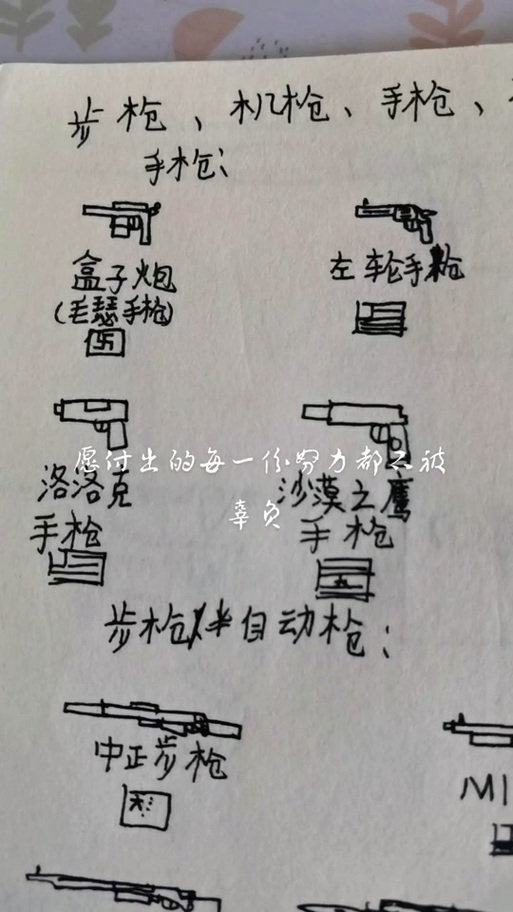 步枪、机枪、手枪、
手枪：
盒子炮
(毛瑟手枪)
左轮手枪
洛洛克
手枪
沙漠之鹰
手枪
愿付出的每一份努力都不被
辜负
步枪/半自动枪：
中正步枪
M1